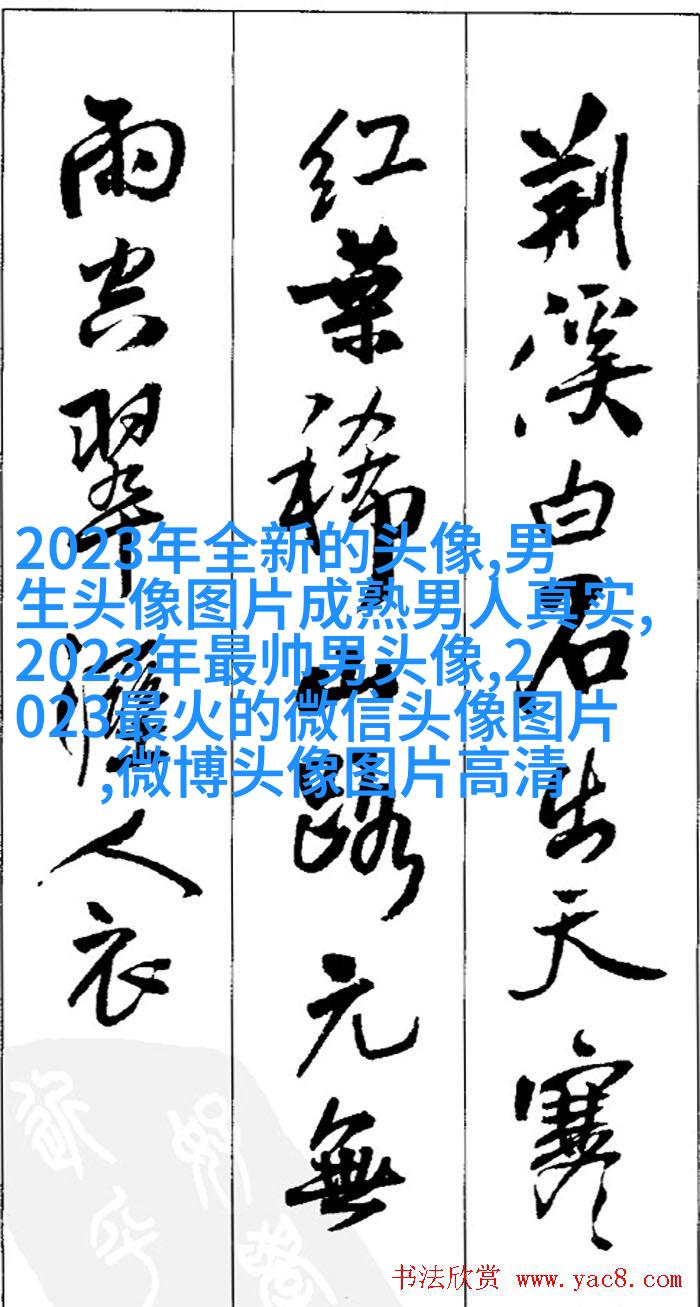 荆溪白石出天寒
红葉稀山路元無
雨空翠濕人衣
2023年全新的头像,男
生头像图片成熟男人真实,
2023年最帅男头像,2
023最火的微信头像图片
,微博头像图片高清
书法欣赏 www.yac8.com